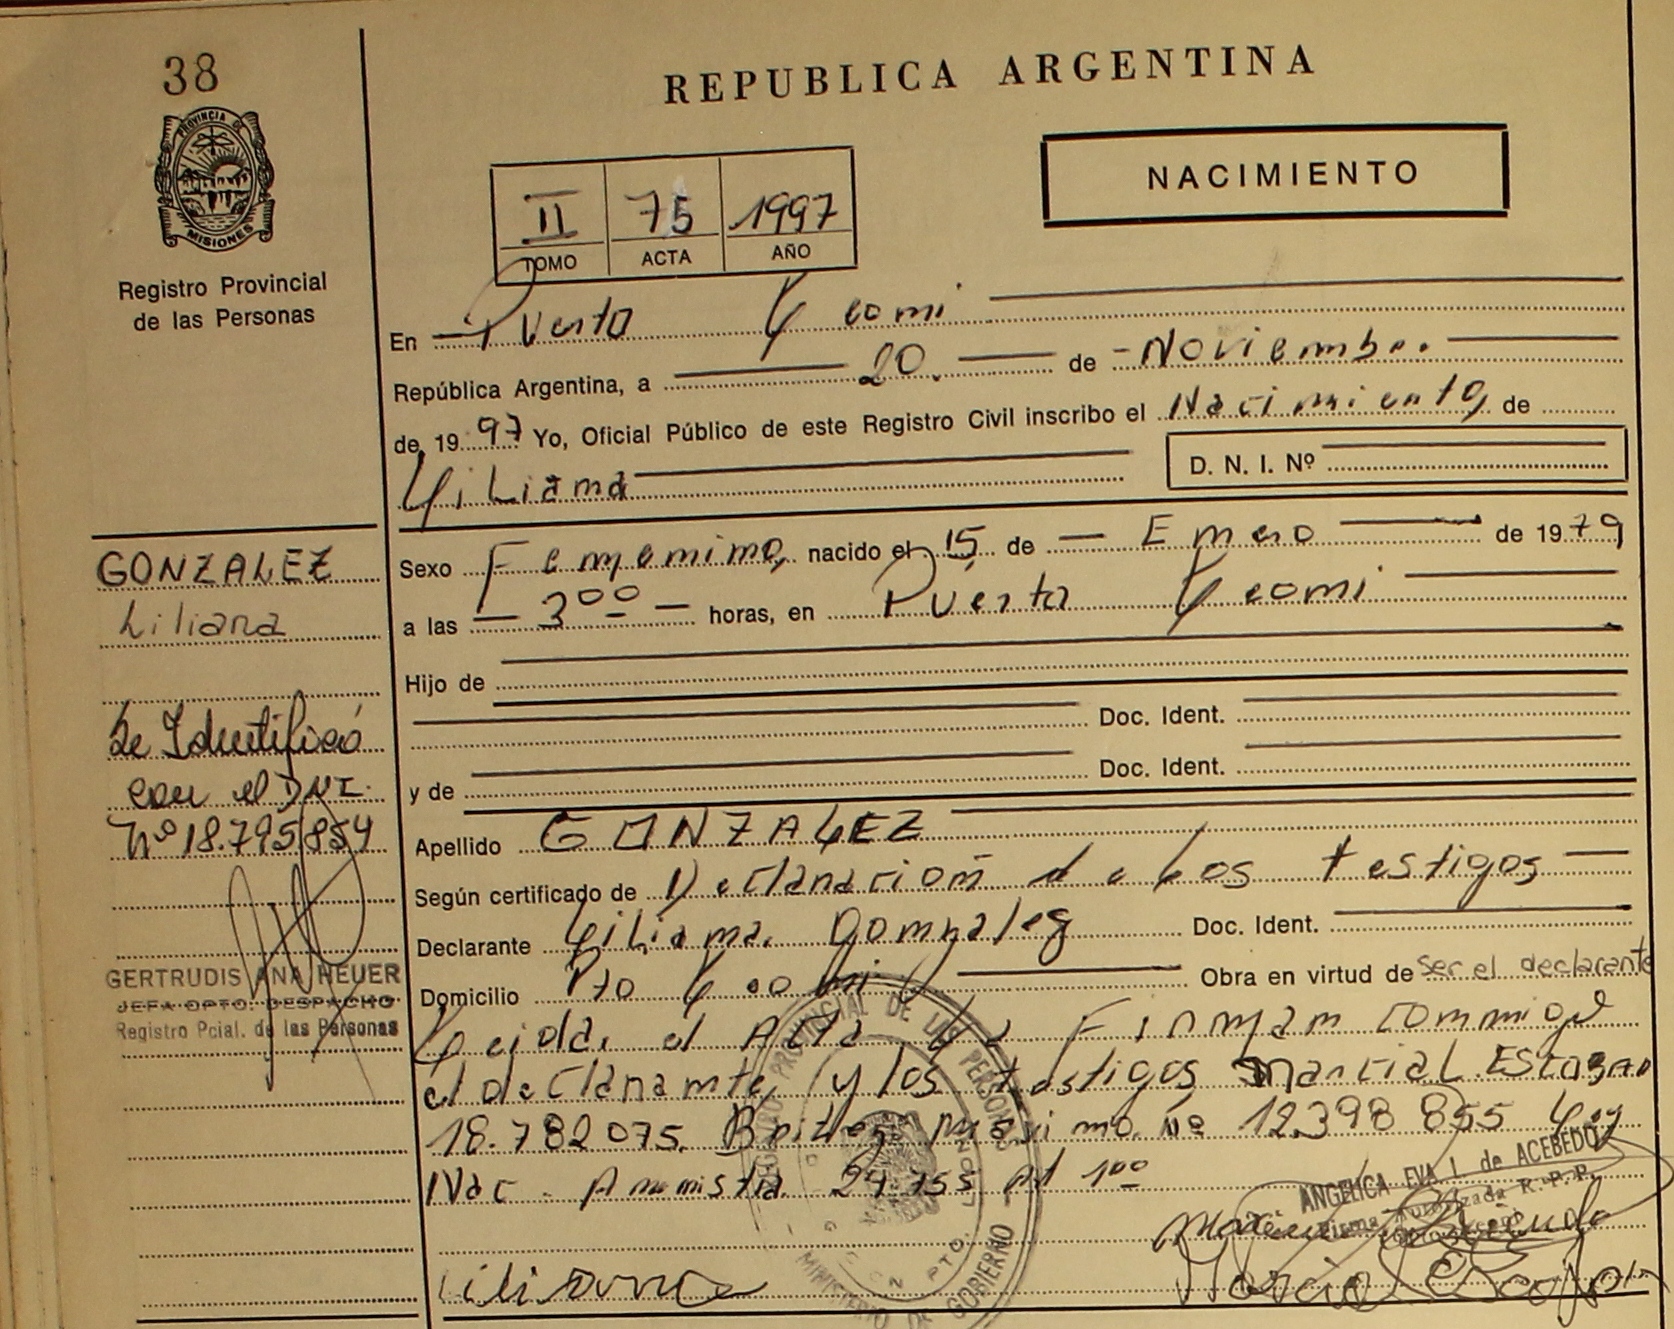 38
REPUBLICA ARGENTINA
PROVINCIA DE
MISIONES
NACIMIENTO
II 75 1997
TOMO ACTA AÑO
Registro Provincial
de las Personas
En Puerto Leoni
República Argentina, a 20. de Noviembre
de 1997 Yo, Oficial Público de este Registro Civil inscribo el Nacimiento de
Liliana D. N. I. Nº
GONZALEZ
Liliana
Sexo Femenino nacido el 15 de Enero de 1979
a las 3ºº horas, en Puerto Leoni
Hijo de
Doc. Ident.
y de Doc. Ident.
Se Identificó
con el DNI.
Nº 18.795.854
Apellido GONZALEZ
Según certificado de Declaración de Los testigos
Declarante Liliana Gonzalez Doc. Ident.
Domicilio Pto Leoni Obra en virtud de Ser el declarante
GERTRUDIS ANA HEUER
JEFA DPTO. DESPACHO
Registro Pcial. de las Personas
Leida el Acta La Firman conmigo
el declarante y los testigos Marcial
18.782075. nº 12.398 855 Ley
Nac. Amnistia 24.755 Art 1ºº
ANGELICA EVA L. de ACEBEDO
Firma Autorizada R.P.P.
REGISTRO PROVINCIAL DE LAS PERSONAS
MINISTERIO DE GOBIERNO
Liliana